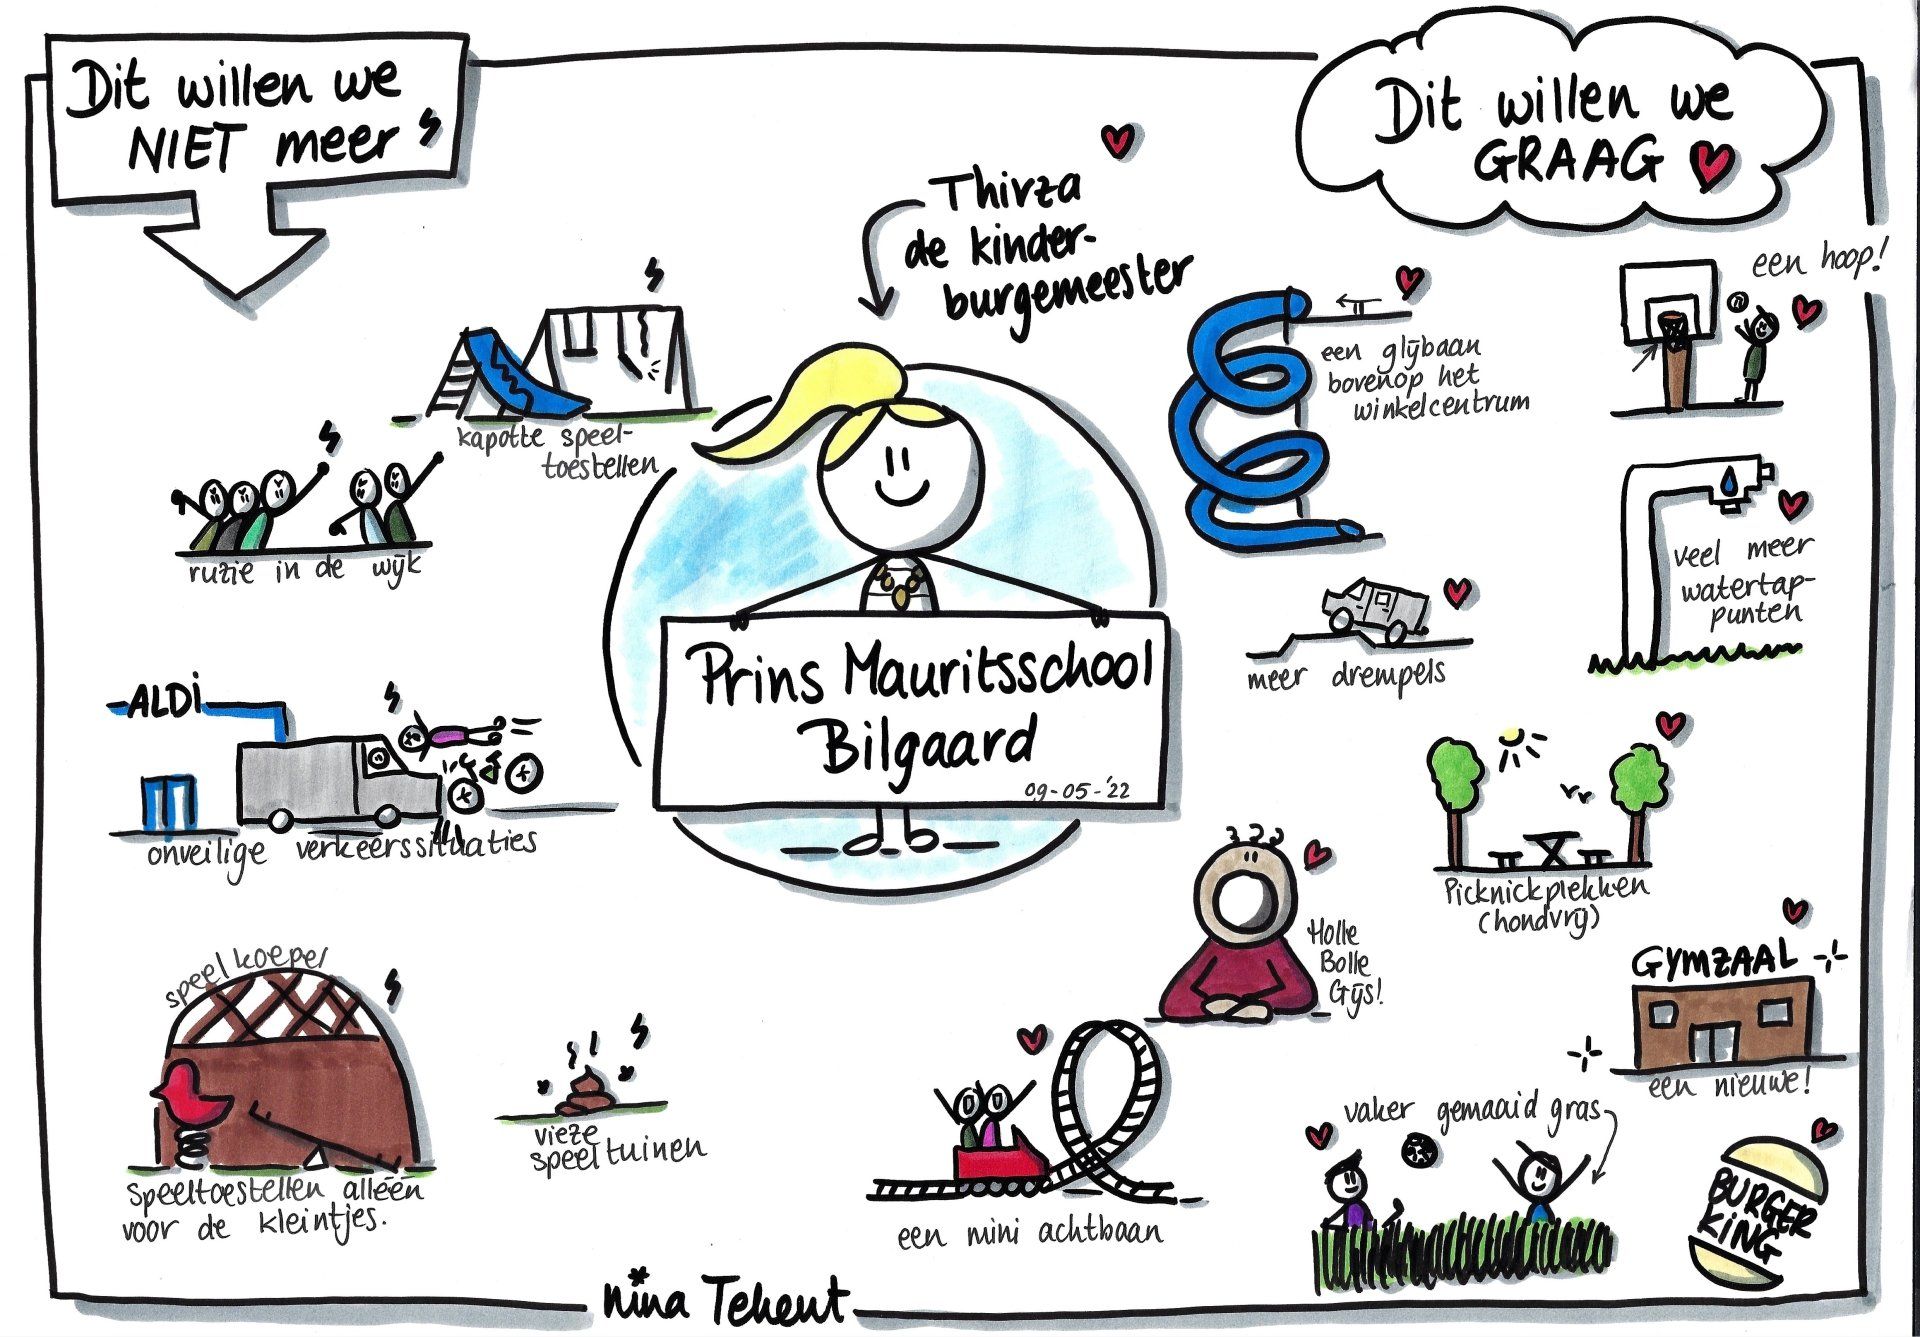 Dit willen we
NIET meer
Dit willen we
GRAAG
Thirza
de kinder-
burgemeester
een hoop!
een glijbaan
bovenop het
winkelcentrum
kapotte speel-
toestellen
ruzie in de wijk
veel meer
watertap-
punten
meer drempels
Prins Mauritsschool
Bilgaard
09-05-'22
ALDi
onveilige verkeerssituaties
Picknickplekken
(hondvrij)
Holle
Bolle
Gijs!
GYMZAAL
een nieuwe!
speelkoepel
speeltoestellen alléén
voor de kleintjes.
vieze
speeltuinen
een mini achtbaan
vaker gemaaid gras
BURGER
KING
nina Tekent